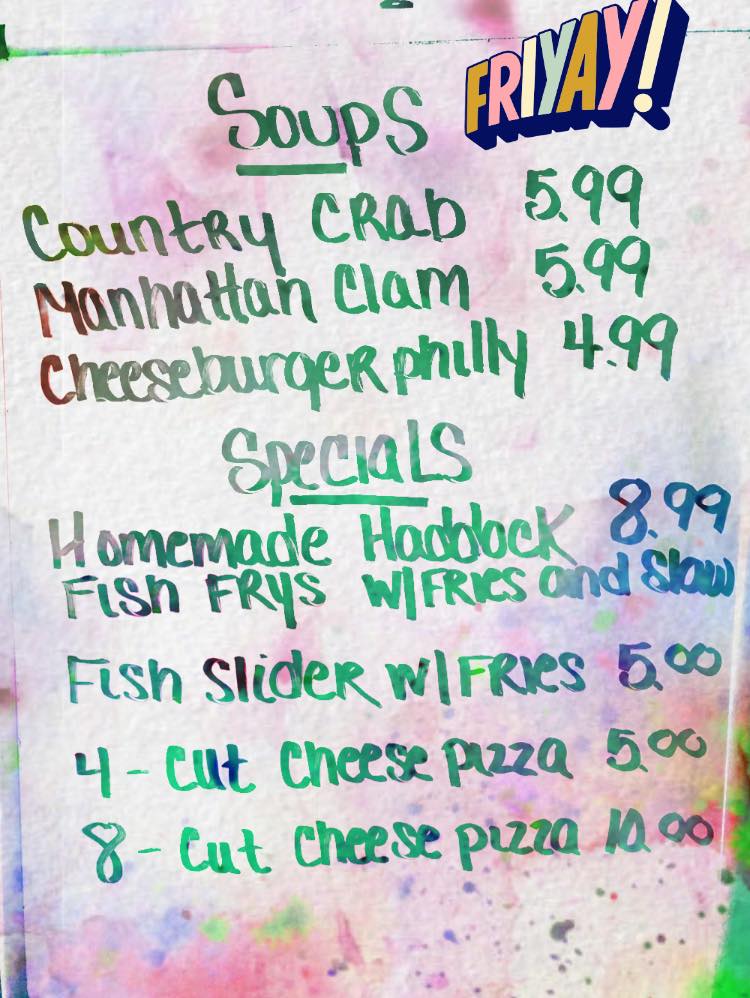 FRIYAY!
Soups
Country Crab 5.99
Manhattan Clam 5.99
Cheeseburger philly 4.99
Specials
Homemade Haddock 8.99
Fish Frys w/Fries and Slaw
Fish Slider w/Fries 5.00
4 - Cut Cheese pizza 5.00
8 - Cut Cheese pizza 10.00